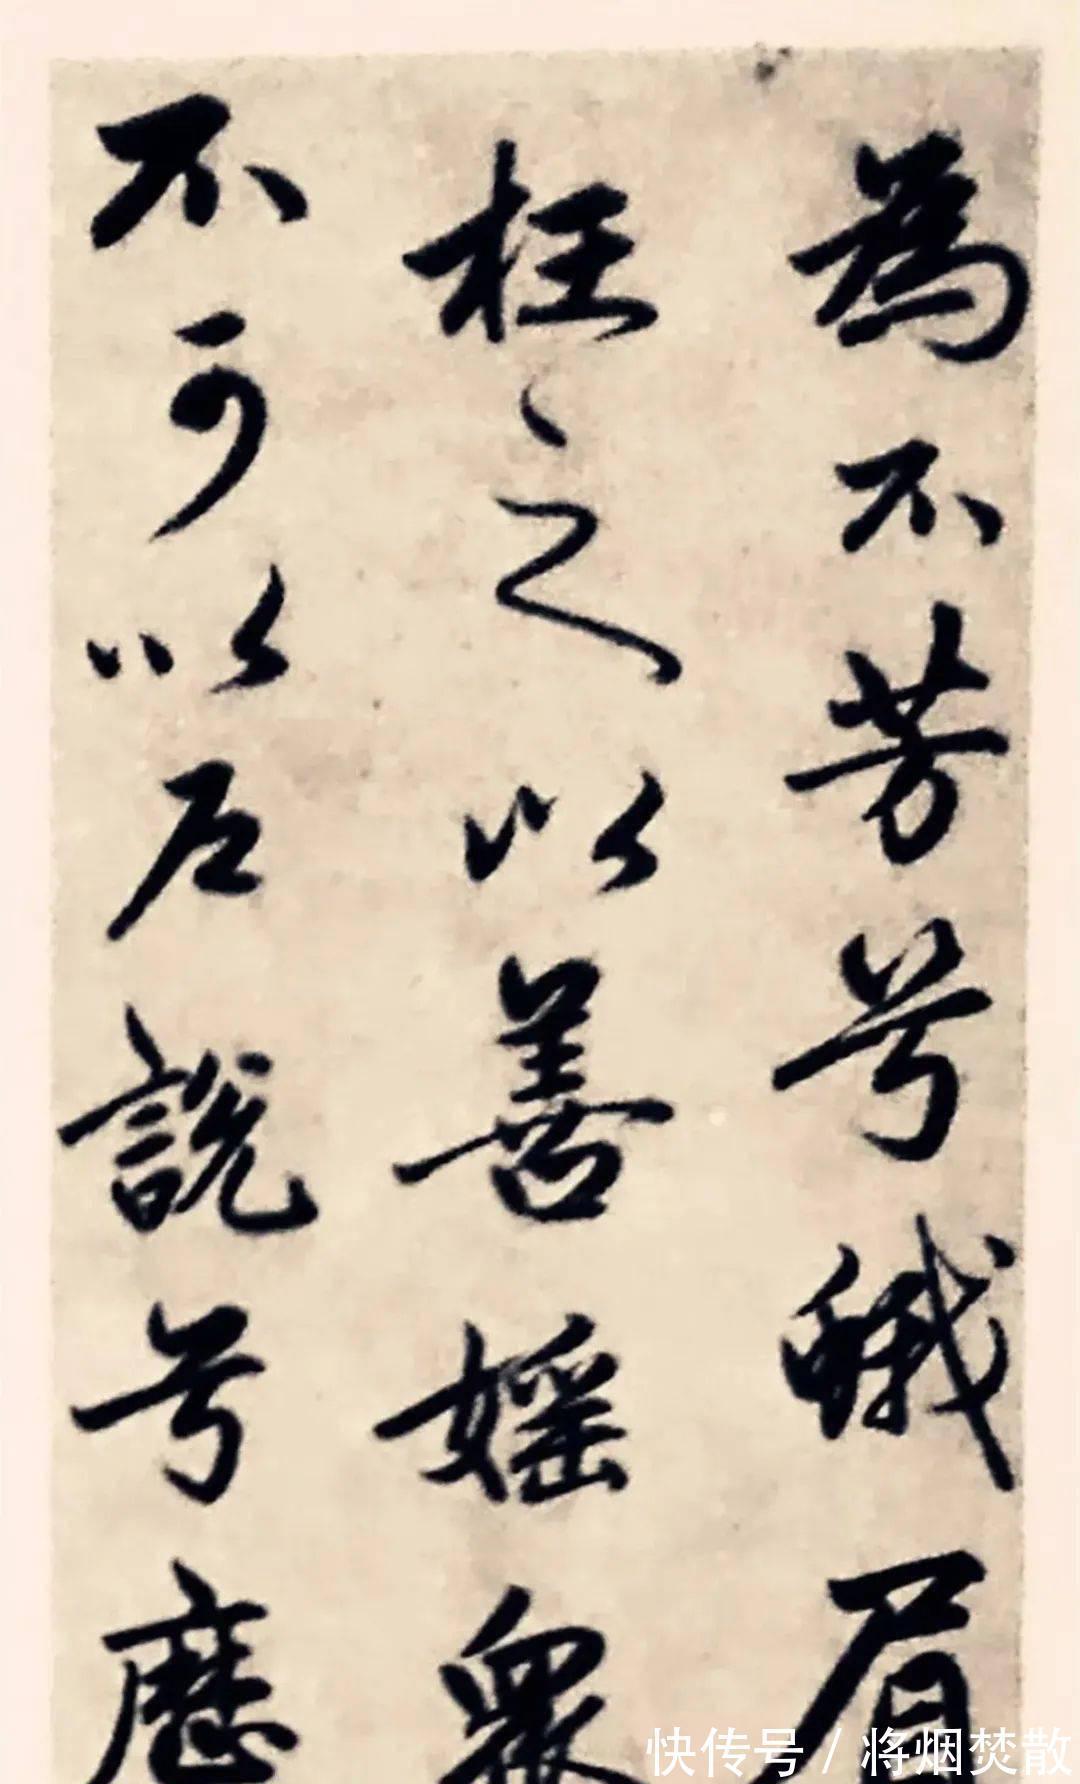 為不芳兮蛾眉
枉之以善媱衆
不可以户說兮歷
快传号 / 将烟焚散